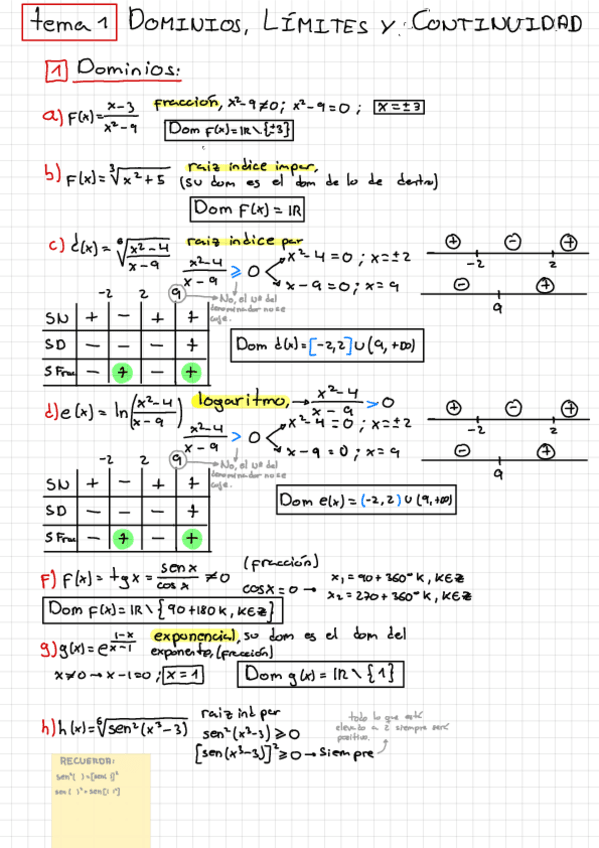 tema 1 DOMINIOS, LÍMITES Y CONTINUIDAD
1 Dominios:
a) F(x) = x-3 / x²-9 fracción, x²-9≠0; x²-9=0; x=±3
Dom F(x)=IR\{±3}
b) F(x) = ³√x²+5 raiz indice impar,
(su dom es el dom de lo de dentro)
Dom F(x) = IR
c) d(x) = √x²-4 / x-9 raiz indice par
x²-4 / x-9 ≥ 0 x²-4=0; x=±2
x-9=0; x=9
+ - + -2 2
- + 9
-2 2 9 No, el nº del denominador no se coje.
SN + - + +
SD - - - +
SFrac - + - +
Dom d(x)=[-2,2]∪(9,+∞)
d) e(x) = ln(x²-4 / x-9) logaritmo, → x²-4 / x-9 > 0
x²-4 / x-9 > 0 x²-4=0; x=±2
x-9=0; x=9
+ - + -2 2
- + 9
-2 2 9 No, el nº del denominador no se coje.
SN + - + +
SD - - - +
SFrac - + - +
Dom e(x)=(-2,2)∪(9,+∞)
F) F(x) = tgx = senx / cosx ≠0 (fracción)
cosx=0 → x₁=90+360°k, K∈Z
x₂=270+360°k, K∈Z
Dom F(x)=IR\{90+180k, K∈Z}
g) g(x)=e^(1-x / x-1) exponencial, su dom es el dom del
exponente, (fracción)
x≠0 → x-1=0; x=1 Dom g(x)=IR\{1}
h) h(x)=⁶√sen²(x³-3) raiz ind par
sen²(x³-3)≥0
[sen(x³-3)]²≥0 → Siempre
todo lo que esté
elevado a 2 siempre será
positivo.
RECUERDA:
sen²( )=[sen( )]²
sen( )²=sen[( )²]